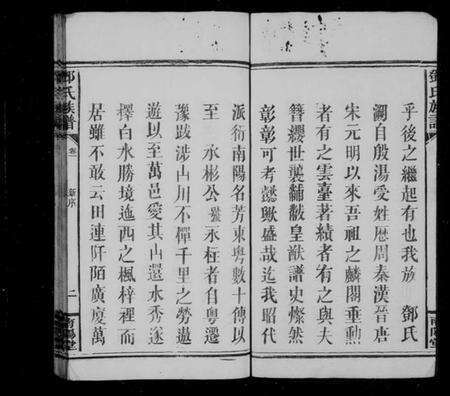 鄧氏族譜
乎後之繼起有也我放 鄧氏
溯自殷湯受姓歷周秦漢晉唐
宋元明以來吾祖之麟閣垂勳
者有之雲臺著績者有之與夫
簪纓世襲黼黻皇猷譜史燦然
彰彰可考懿歟盛哉迄我昭代
派衍南陽名芳東粵數十傳以
至 永彬公 承枉者自粵遷
豫跋涉山川不憚千里之勞遨
遊以至萬邑愛其山還水秀遂
擇白水勝境迤西之楓梓裡而
居雖不敢云田連阡陌廣廈萬
鄧氏族譜
卷
新序
二
南陽堂